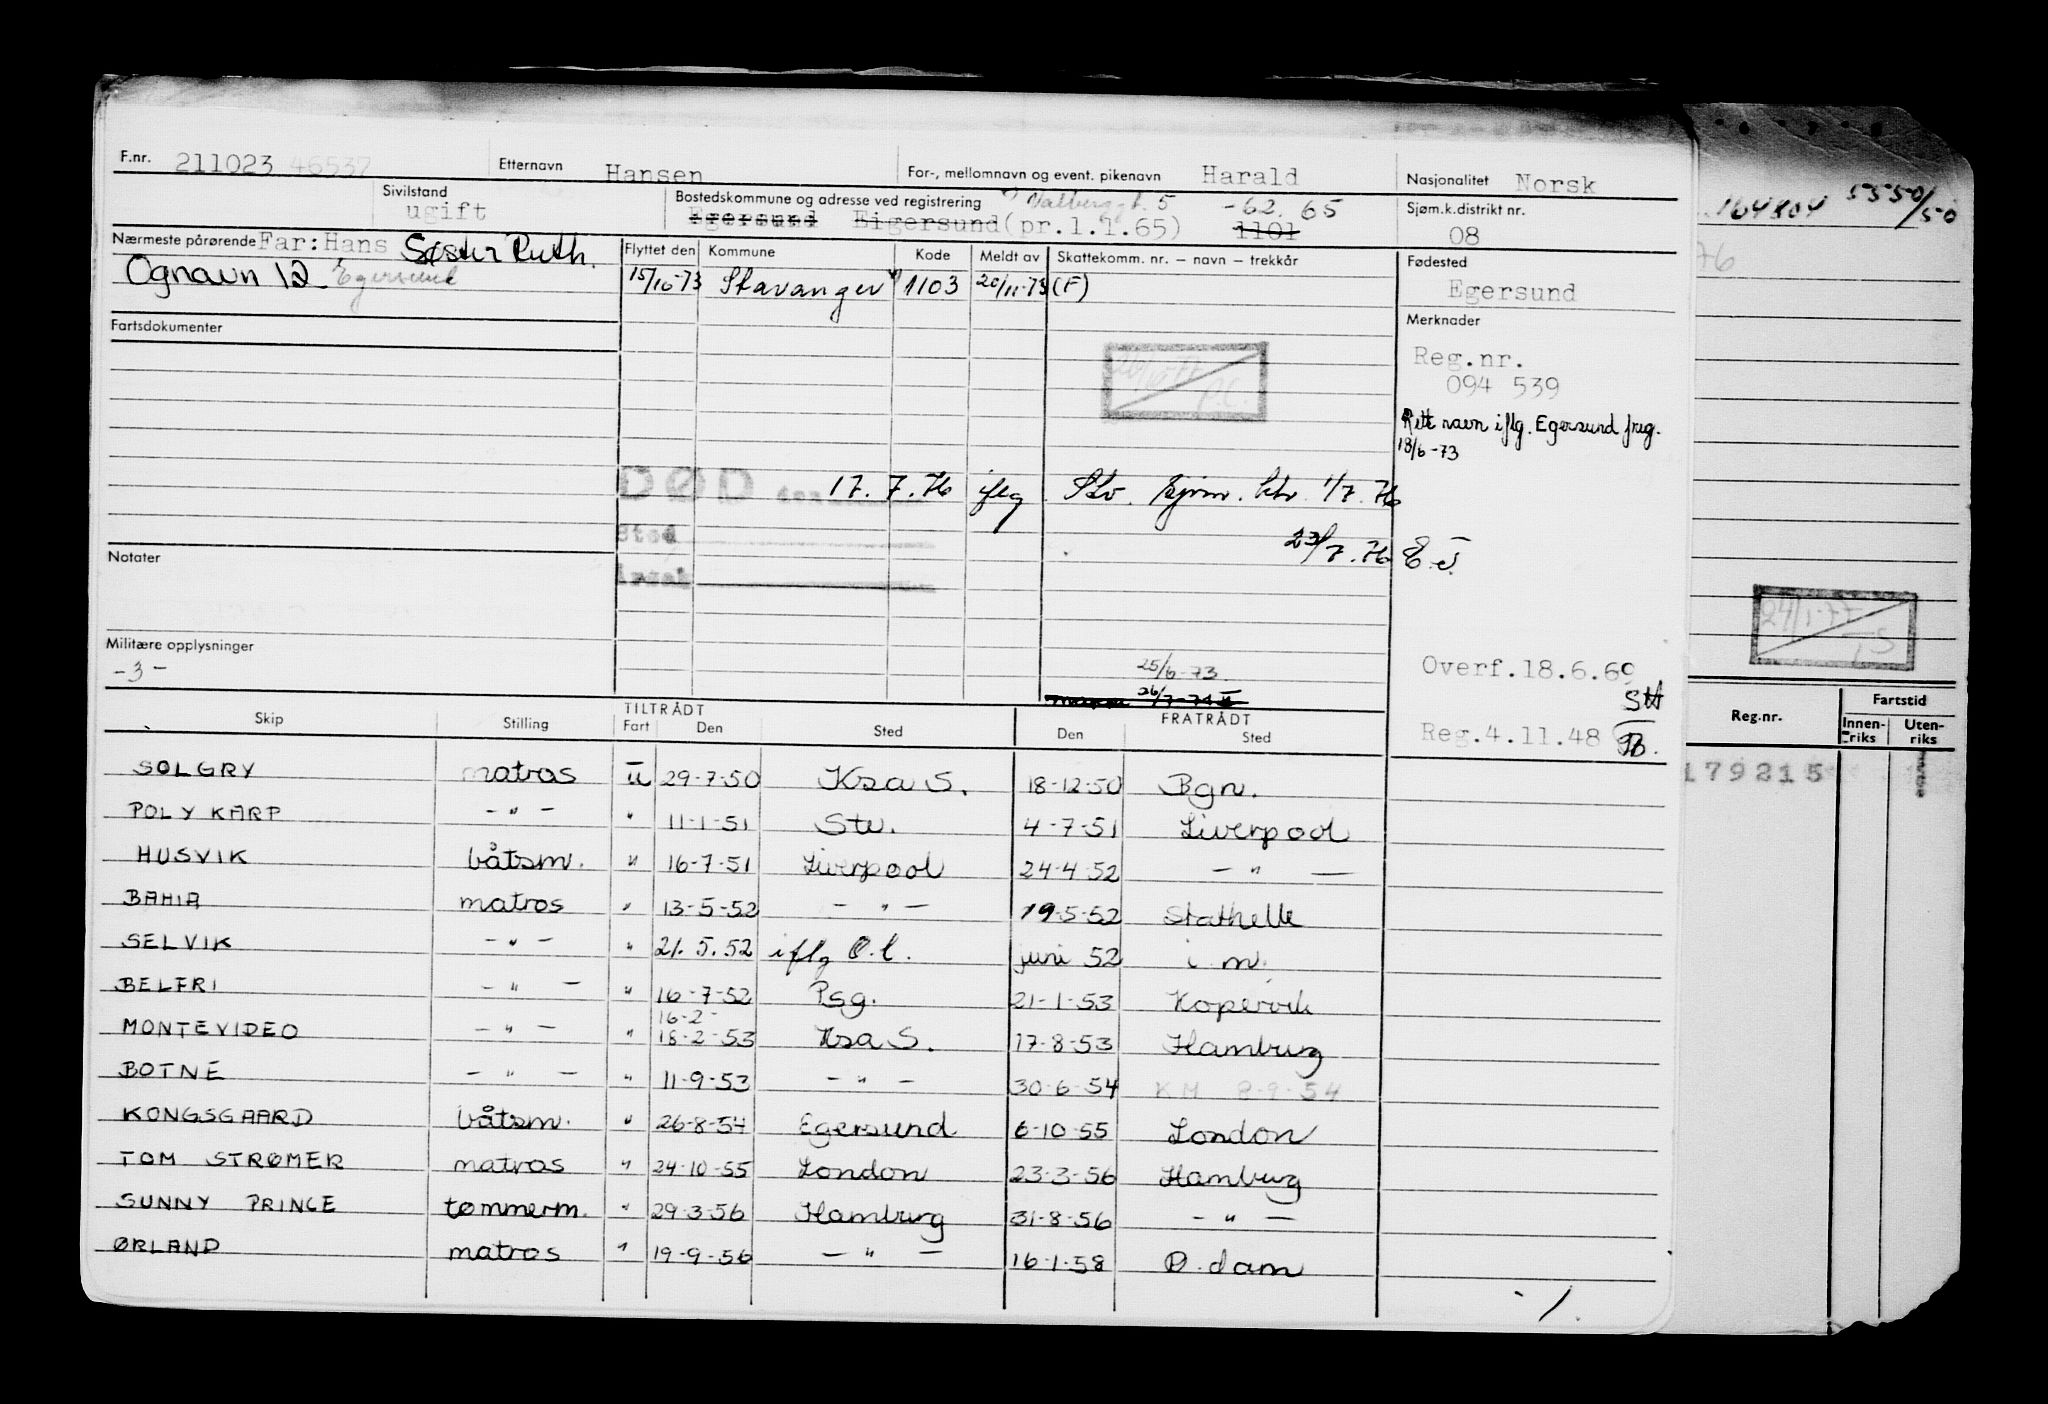 F.nr. 211023 46537 Etternavn Hansen For-, mellomnavn og event. pikenavn Harald Nasjonalitet Norsk
164804 5550/50
Sivilstand ugift Bostedskommune og adresse ved registrering 5 -62. 65 Sjøm.k.distrikt nr.
Egersund Eigersund (pr.1.1.65) 1101 08
Nærmeste pårørende Far: Hans Søster Ruth. Flyttet den Kommune Kode Meldt av Skattekomm. nr. – navn – trekkår Fødested
Ognavn 12 Egersund 15/10-73 Stavanger 1103 20/11-73 (F) Egersund
76
Fartsdokumenter Merknader
Reg.nr.
094 539
Rett navn iflg. Egersund freg.
18/6-73
DØD 17. 7. 76 iflg Stv. 1/7. 76
Sted 23/7. 76 E.J.
Notater
Årsak
24/1-77
Militære opplysninger
-3- 25/6-73. Overf.18.6.69
26/7-74
Skip Stilling TILTRÅDT Fart Den Sted FRATRÅDT Den Sted Reg.4.11.48
Reg.nr. Fartstid Innen-riks Uten-riks
179215
SOLGRY matros u 29-7-50 Ksa S. 18-12-50 Bgn.
POLYKARP - " - " 11-1-51 Stv. 4-7-51 Liverpool
HUSVIK båtsm. " 16-7-51 Liverpool 24-4-52 - " -
BAHIA matros " 13-5-52 - " - 19-5-52 Stathelle
SELVIK - " - " 21.5.52 iflg O.l. juni 52 i.m.
BELFRI - " - " 16-7-52 Psg. 21-1-53 Kopervik
16-2-
MONTEVIDEO - " - " 18-2-53 Ksa S. 17-8-53 Hamburg
BOTNE - " - " 11-9-53 - " - 30-6-54 KM 8-9-54
KONGSGAARD båtsm. " 26-8-54 Egersund 6-10-55 London
TOM STRØMER matros " 24-10-55 London 23-3-56 Hamburg
SUNNY PRINCE tømmerm. " 29-3-56 Hamburg 31-8-56 - " -
ØRLAND matros " 19-9-56 - " - 16-1-58 O.dam